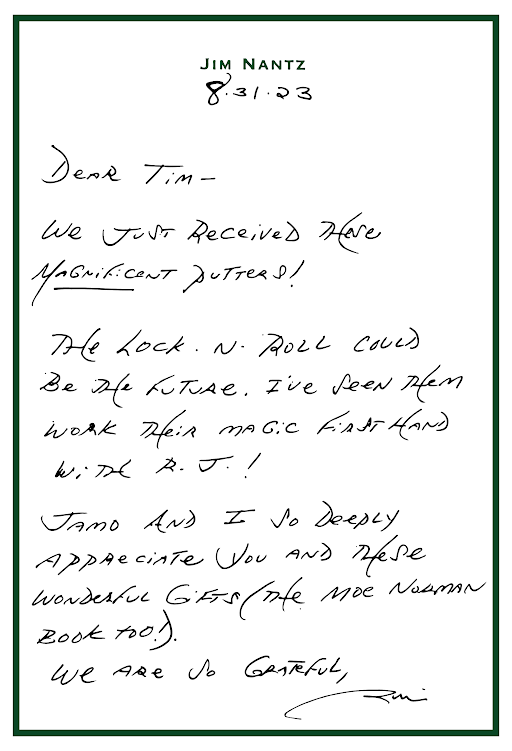 JIM NANTZ
8.31.23
DEAR TIM-
WE JUST RECEIVED THESE
MAGNIFICENT PUTTERS!
THE LOCK. N. ROLL COULD
BE THE FUTURE. I'VE SEEN THEM
WORK THEIR MAGIC FIRSTHAND
WITH R. J.!
JAMO AND I SO DEEPLY
APPRECIATE YOU AND THESE
WONDERFUL GIFTS (THE MOE NORMAN
BOOK TOO!).
WE ARE SO GRATEFUL,
Jim